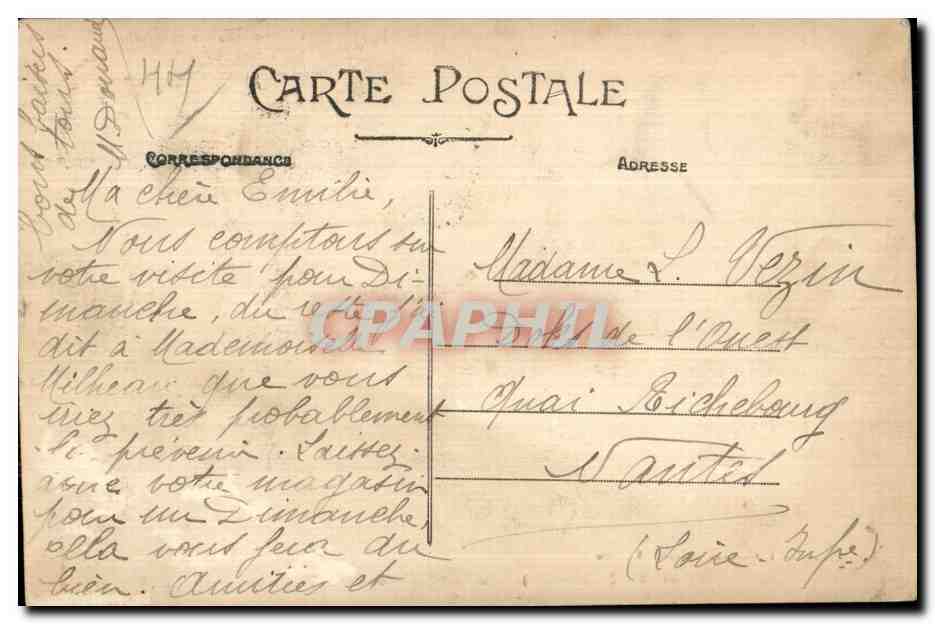 44
CARTE POSTALE
CORRESPONDANCE
ADRESSE
Ma chère Emilie,
Nous comptons sur
votre visite pour Di-
manche, du reste j'ai
dit à Mademoiselle
Milheau que vous
iriez très probablement
la prévenir. Laissez
donc votre magasin
pour un Dimanche,
cella vous fera du
bien. Amitiés et
bons baisers
de tous.
M Donnard
Madame L. Vezin
Docks de l'Ouest
Quai Richebourg
Nantes
(Loire-Infre)
CPAPHIL